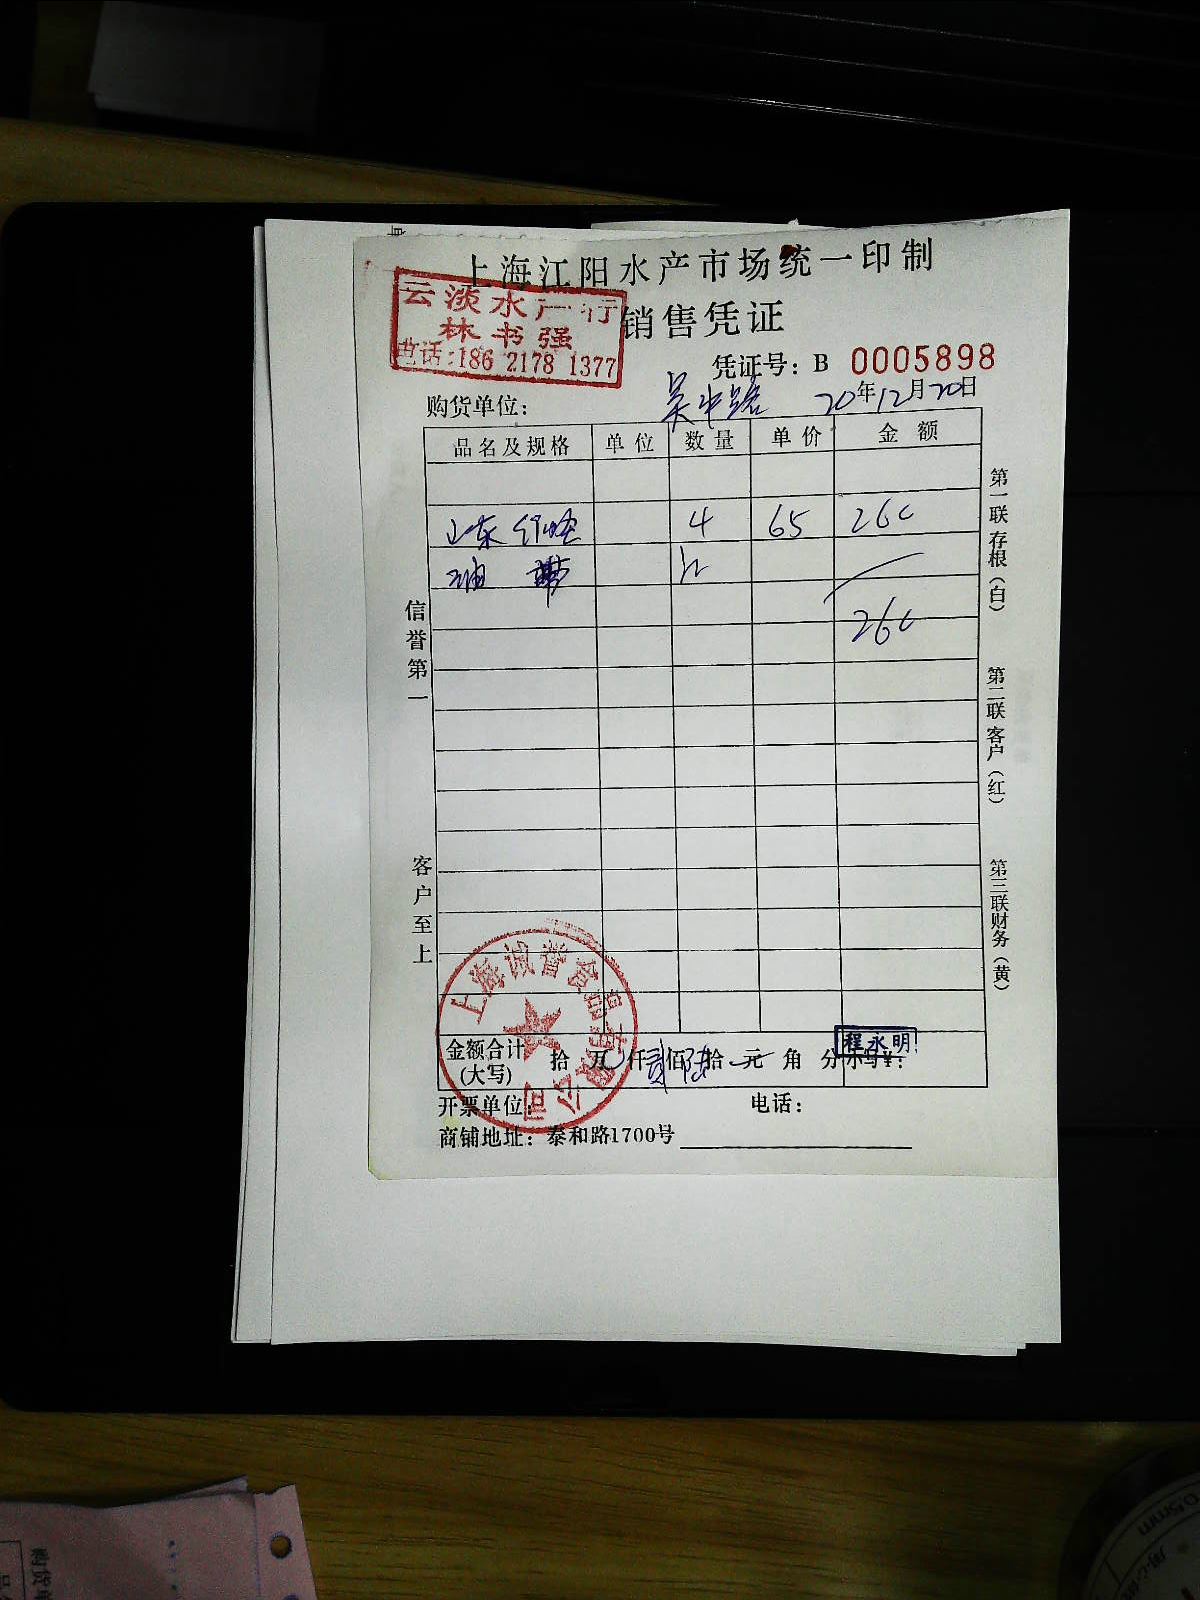 上海江阳水产市场统一印制
云淡水产行
林书强
电话:186 2178 1377
销售凭证
凭证号: B 0005898
购货单位: 吴中路 20年12月20日
品名及规格 单位 数量 单价 金额
山东 4 65 260
油带
260
信誉第一
客户至上
第一联存根(白)
第二联客户(红)
第三联财务(黄)
上海诚誉食品有限公司
程永明
金额合计(大写) 拾 万 仟 贰佰 陆拾 元 角 分 小写¥:
开票单位: 电话:
商铺地址: 泰和路1700号
购货单
0.5mm